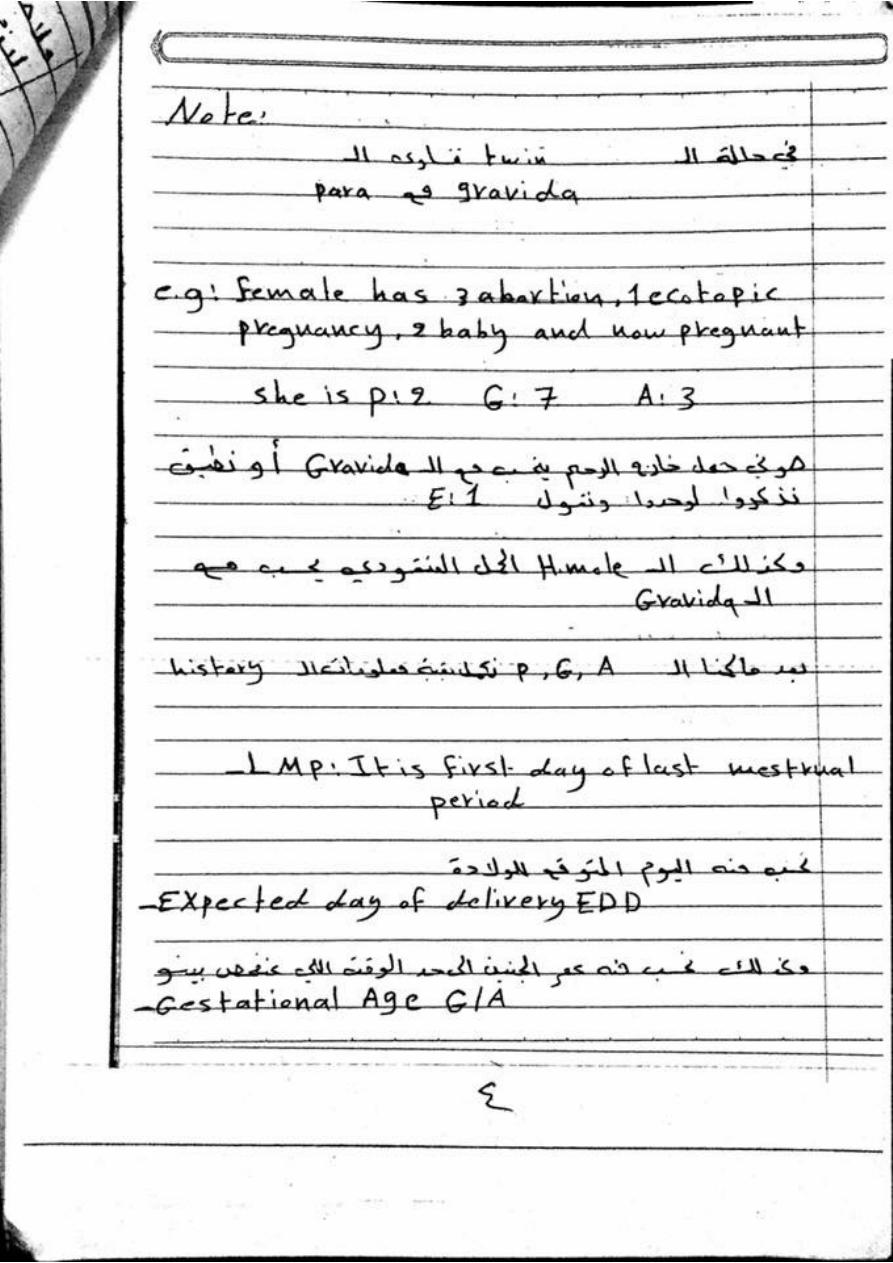 Note:
في حالة ال twin تساوى ال
gravida مع para
e.g: female has 3 abortion, 1 ecotopic
pregnancy, 2 baby and now pregnant
she is p:2 G:7 A:3
حمل خارج الرحم مع ال Gravida أو
نذكروا لوحدوا ونقول E:1
وكذلك ال H.mole الحمل العنقودي يحسب مع
ال Gravida
بعد ال P, G, A ال history
- LMP: It is first day of last mestrual
period
نحسب منه اليوم المتوقع للولادة
- Expected day of delivery EDD
وكذلك نحسب منه عمر الجنين الى حد الوقت اللي
- Gestational Age G/A
٤